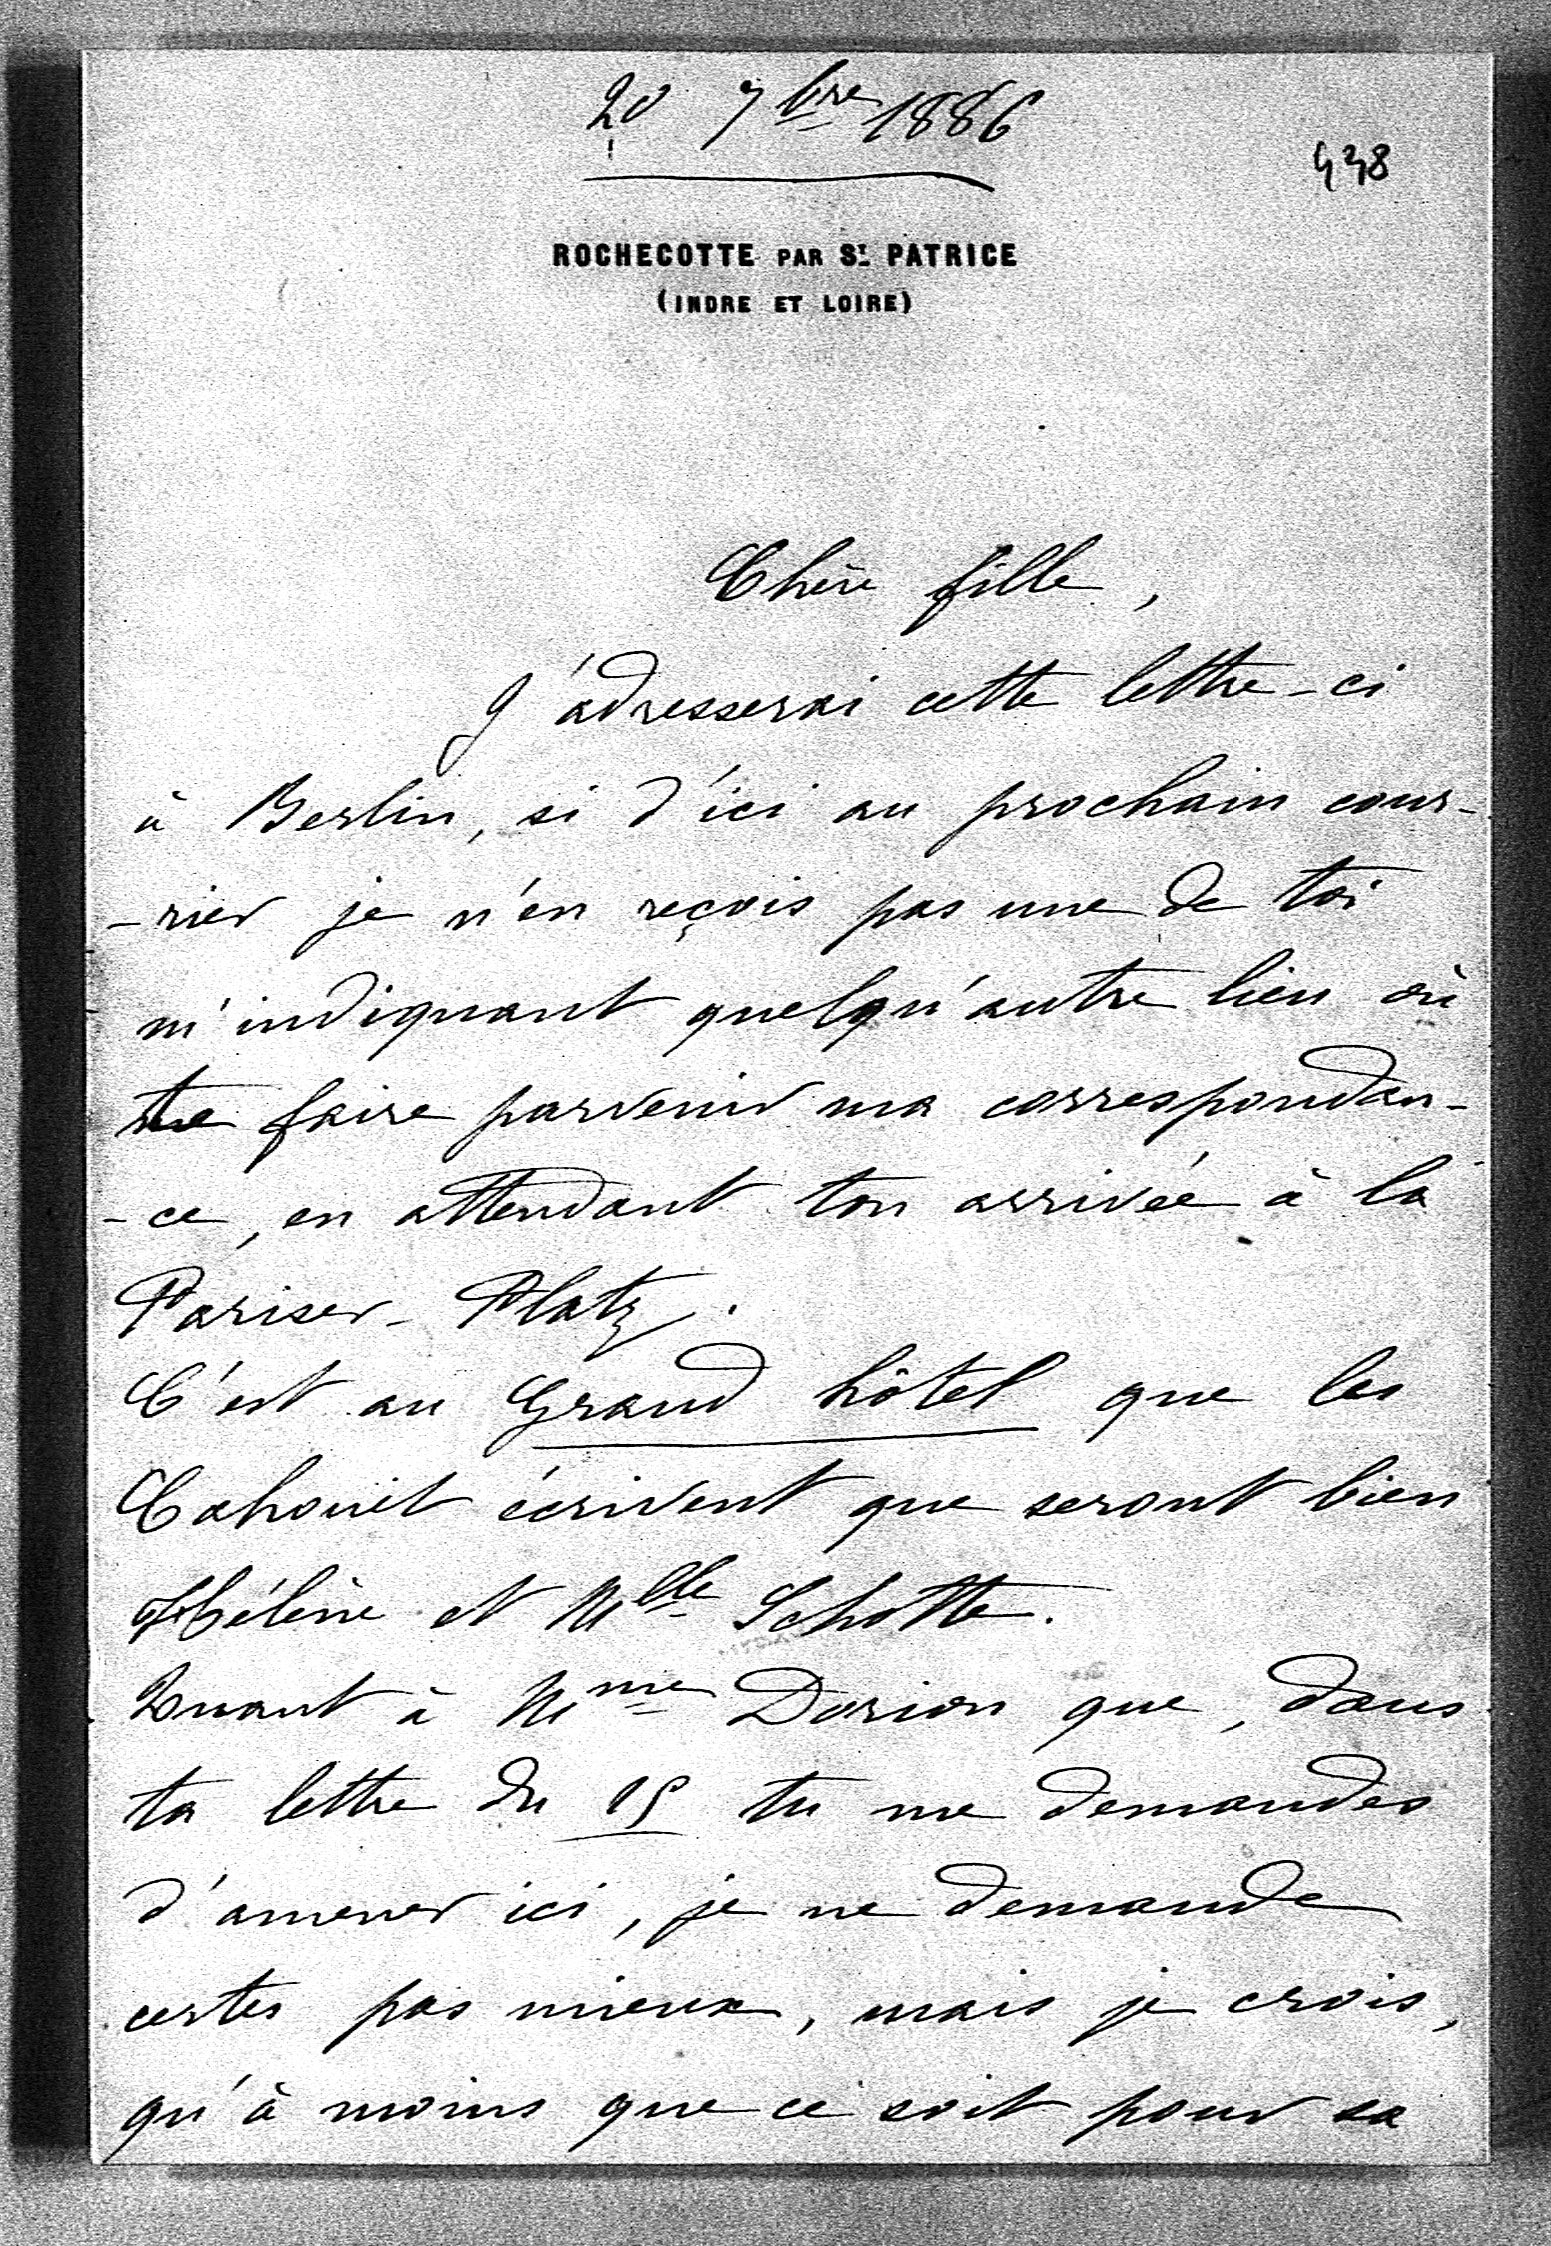 20 7bre 1886
438
ROCHECOTTE PAR ST. PATRICE
(INDRE ET LOIRE)
Chère fille,
J'adresserai cette lettre-ci
à Berlin, si d'ici au prochain cour-
-rier je n'en reçois pas une de toi
m'indiquant quelqu'autre lieu où
te faire parvenir ma correspondan-
-ce, en attendant ton arrivée à la
Pariser-Platz.
C'est au Grand hôtel que les
Cahouët écrivent que seront bien
Hélène et Mlle Schotte.
Quant à Mme Dorion que, dans
ta lettre du 15 tu me demandes
d'amener ici, je ne demande
certes pas mieux, mais je crois,
qu'à moins que ce soit pour sa